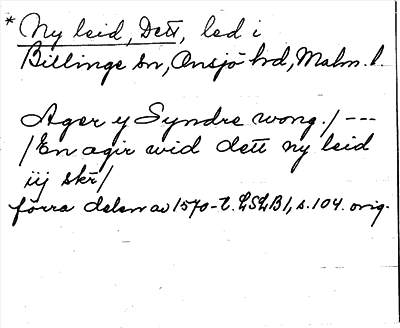 * Ny leid, Dett, led i
Billinge sn, Onsjö hd, Malm. l.
Ager y Syndre wong./ ---
/En agir wid dett ny leid
iij skr/
förra delen av 1570-t. LSLB1, s. 104. orig.